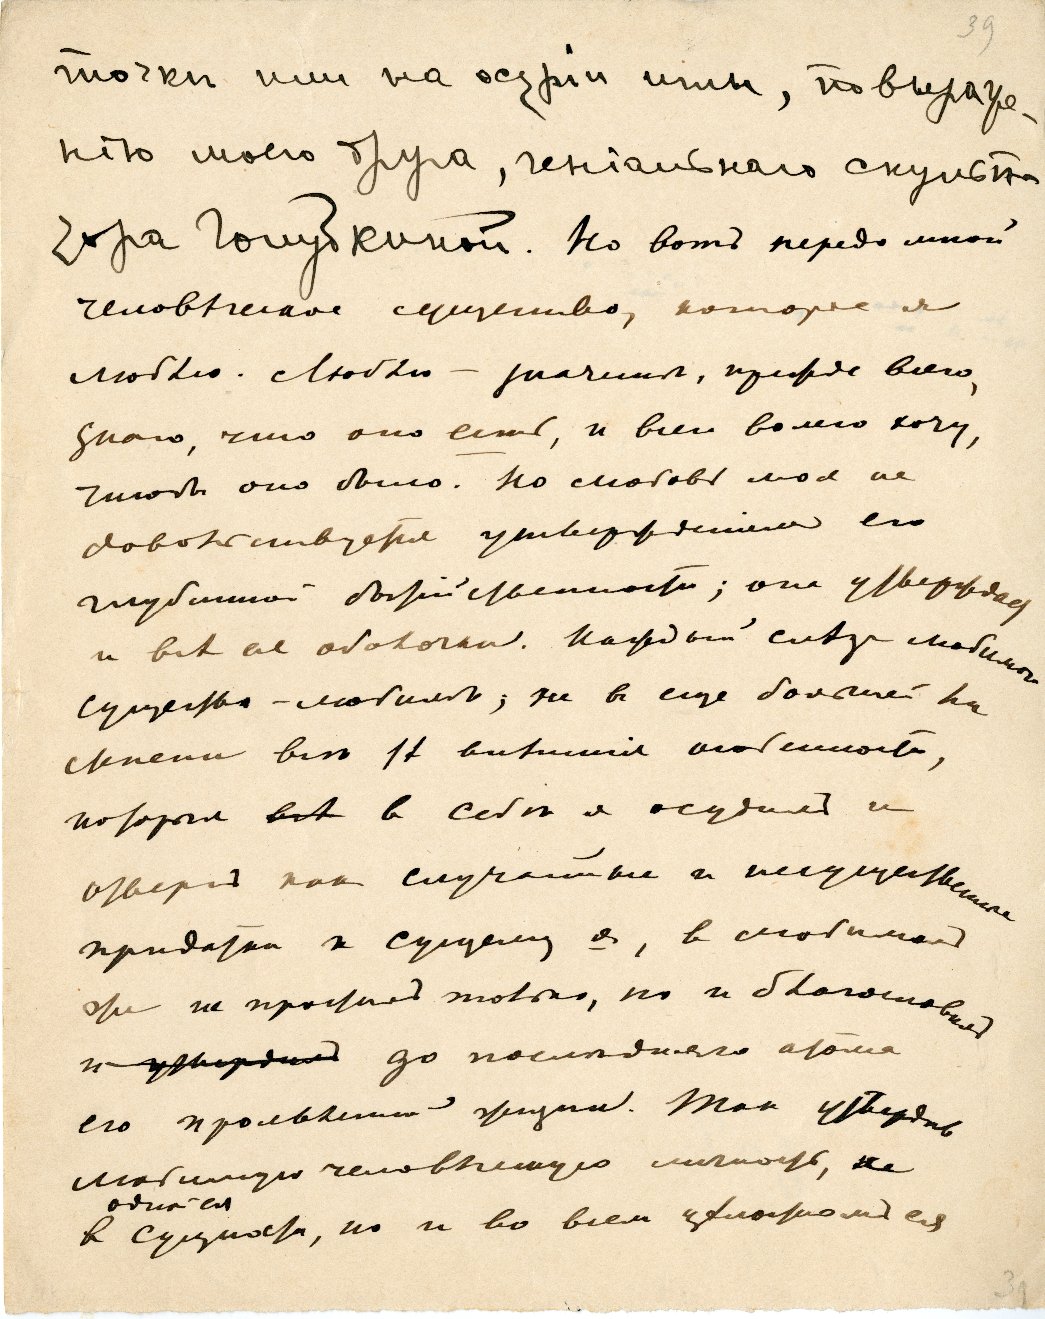 39
точки или на острiи иглы, по выраже-
нiю моего друга, генiальнаго скульпта
тора Голубкиной. Но вотъ передо мной
человѣческое существо, которое я
люблю. Люблю – значитъ, прежде всего,
знаю, что оно есть, и всею волею хочу,
чтобы оно было. Но любовь моя не
довольствуется утвержденiем его
глубинной божественности; она утверждает
и всѣ ея оболочки. Каждый слѣд любимого
существа – любимъ; и в еще большей
степени всѣ тѣ внѣшнiя особенности,
которыя всѣ в себѣ я осудилъ и
отвергъ как случайные и несущественные
придатки к сущему я, в любимомъ
же не простилъ только, но и благословилъ
и утвердилъ до послѣдняго атома
его проявленiй жизни. Так утвердив
любимую человѣческую личность, не
одной ея
в сущности, но и во всем цѣлостномъ ея